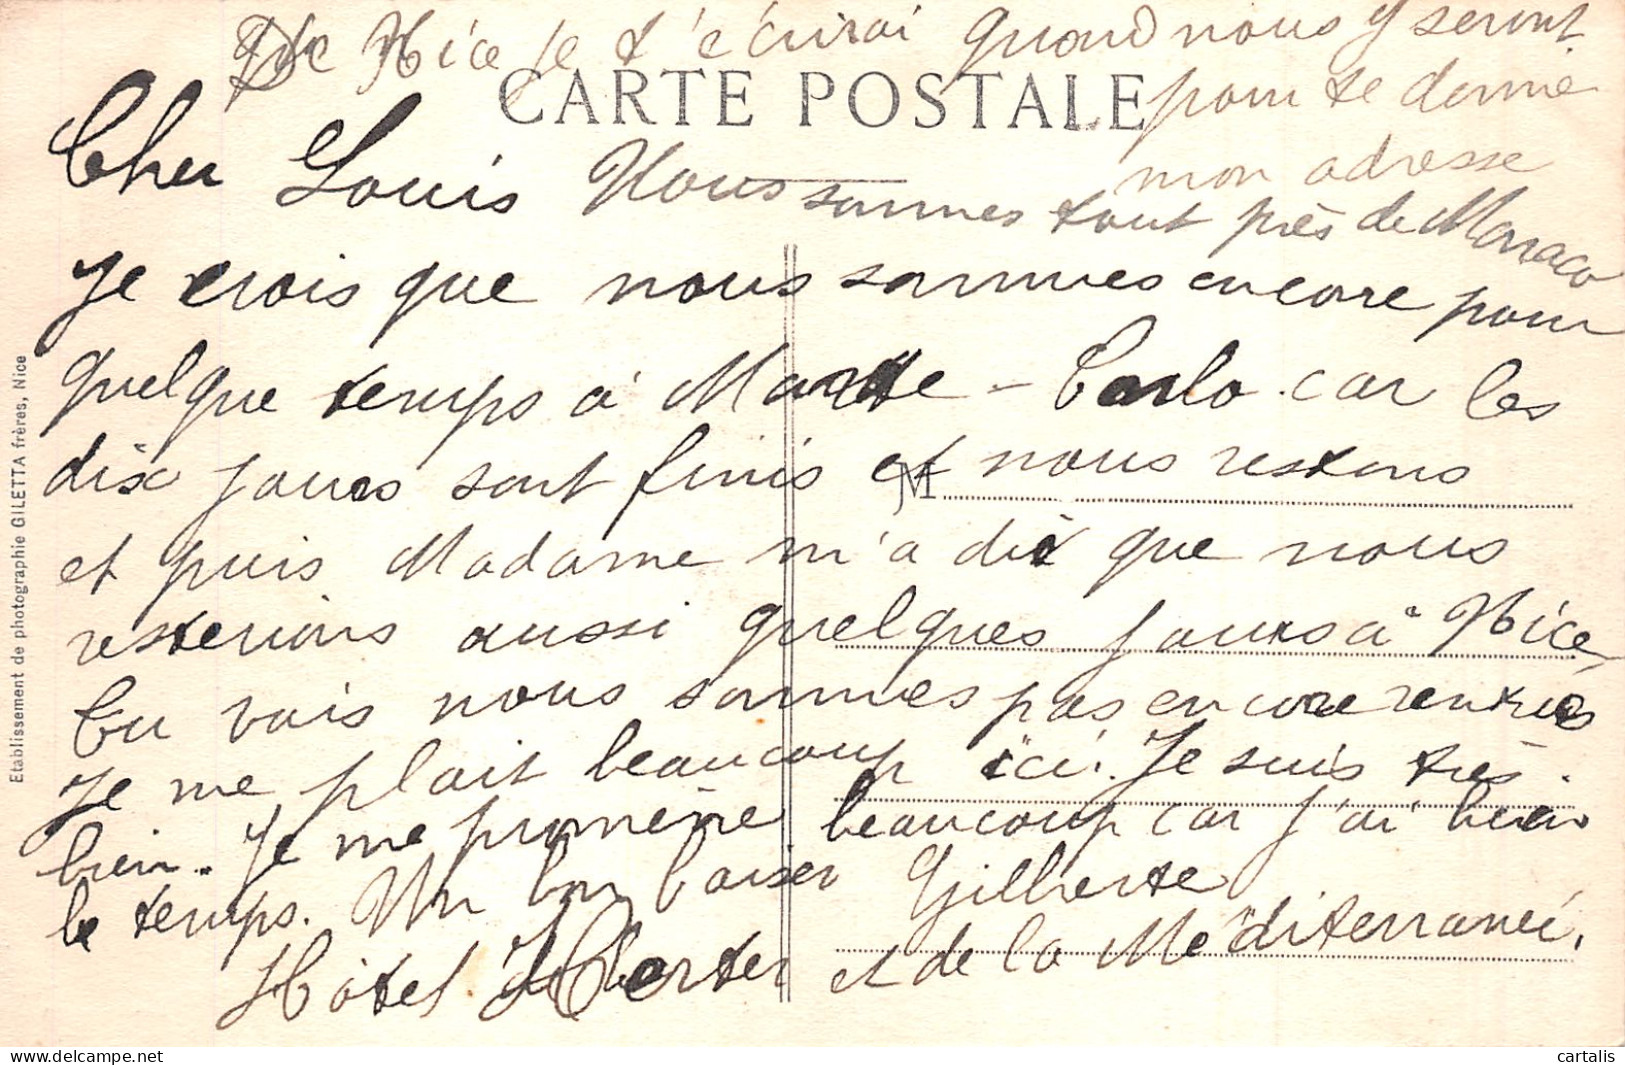 De Nice je t'écrirai quand nous y seront
pour te donne
mon adresse
CARTE POSTALE
Cher Louis Nous sommes tout près de Monaco
Je crois que nous sommes encore pour
quelque temps à Monte-Carlo car les
dix jours sont finis et nous restons
M
et puis Madame m'a dit que nous
resterions aussi quelques jours à Nice,
Tu vois nous sommes pas encore rentrés
Je me plait beaucoup ici. Je suis très
bien. Je me promène beaucoup car j'ai bien
le temps. Un bon baiser Gilberte
Hôtel et de la Méditerranée.
Etablissement de photographie GILETTA frères, Nice
cartalis
delcampe.net